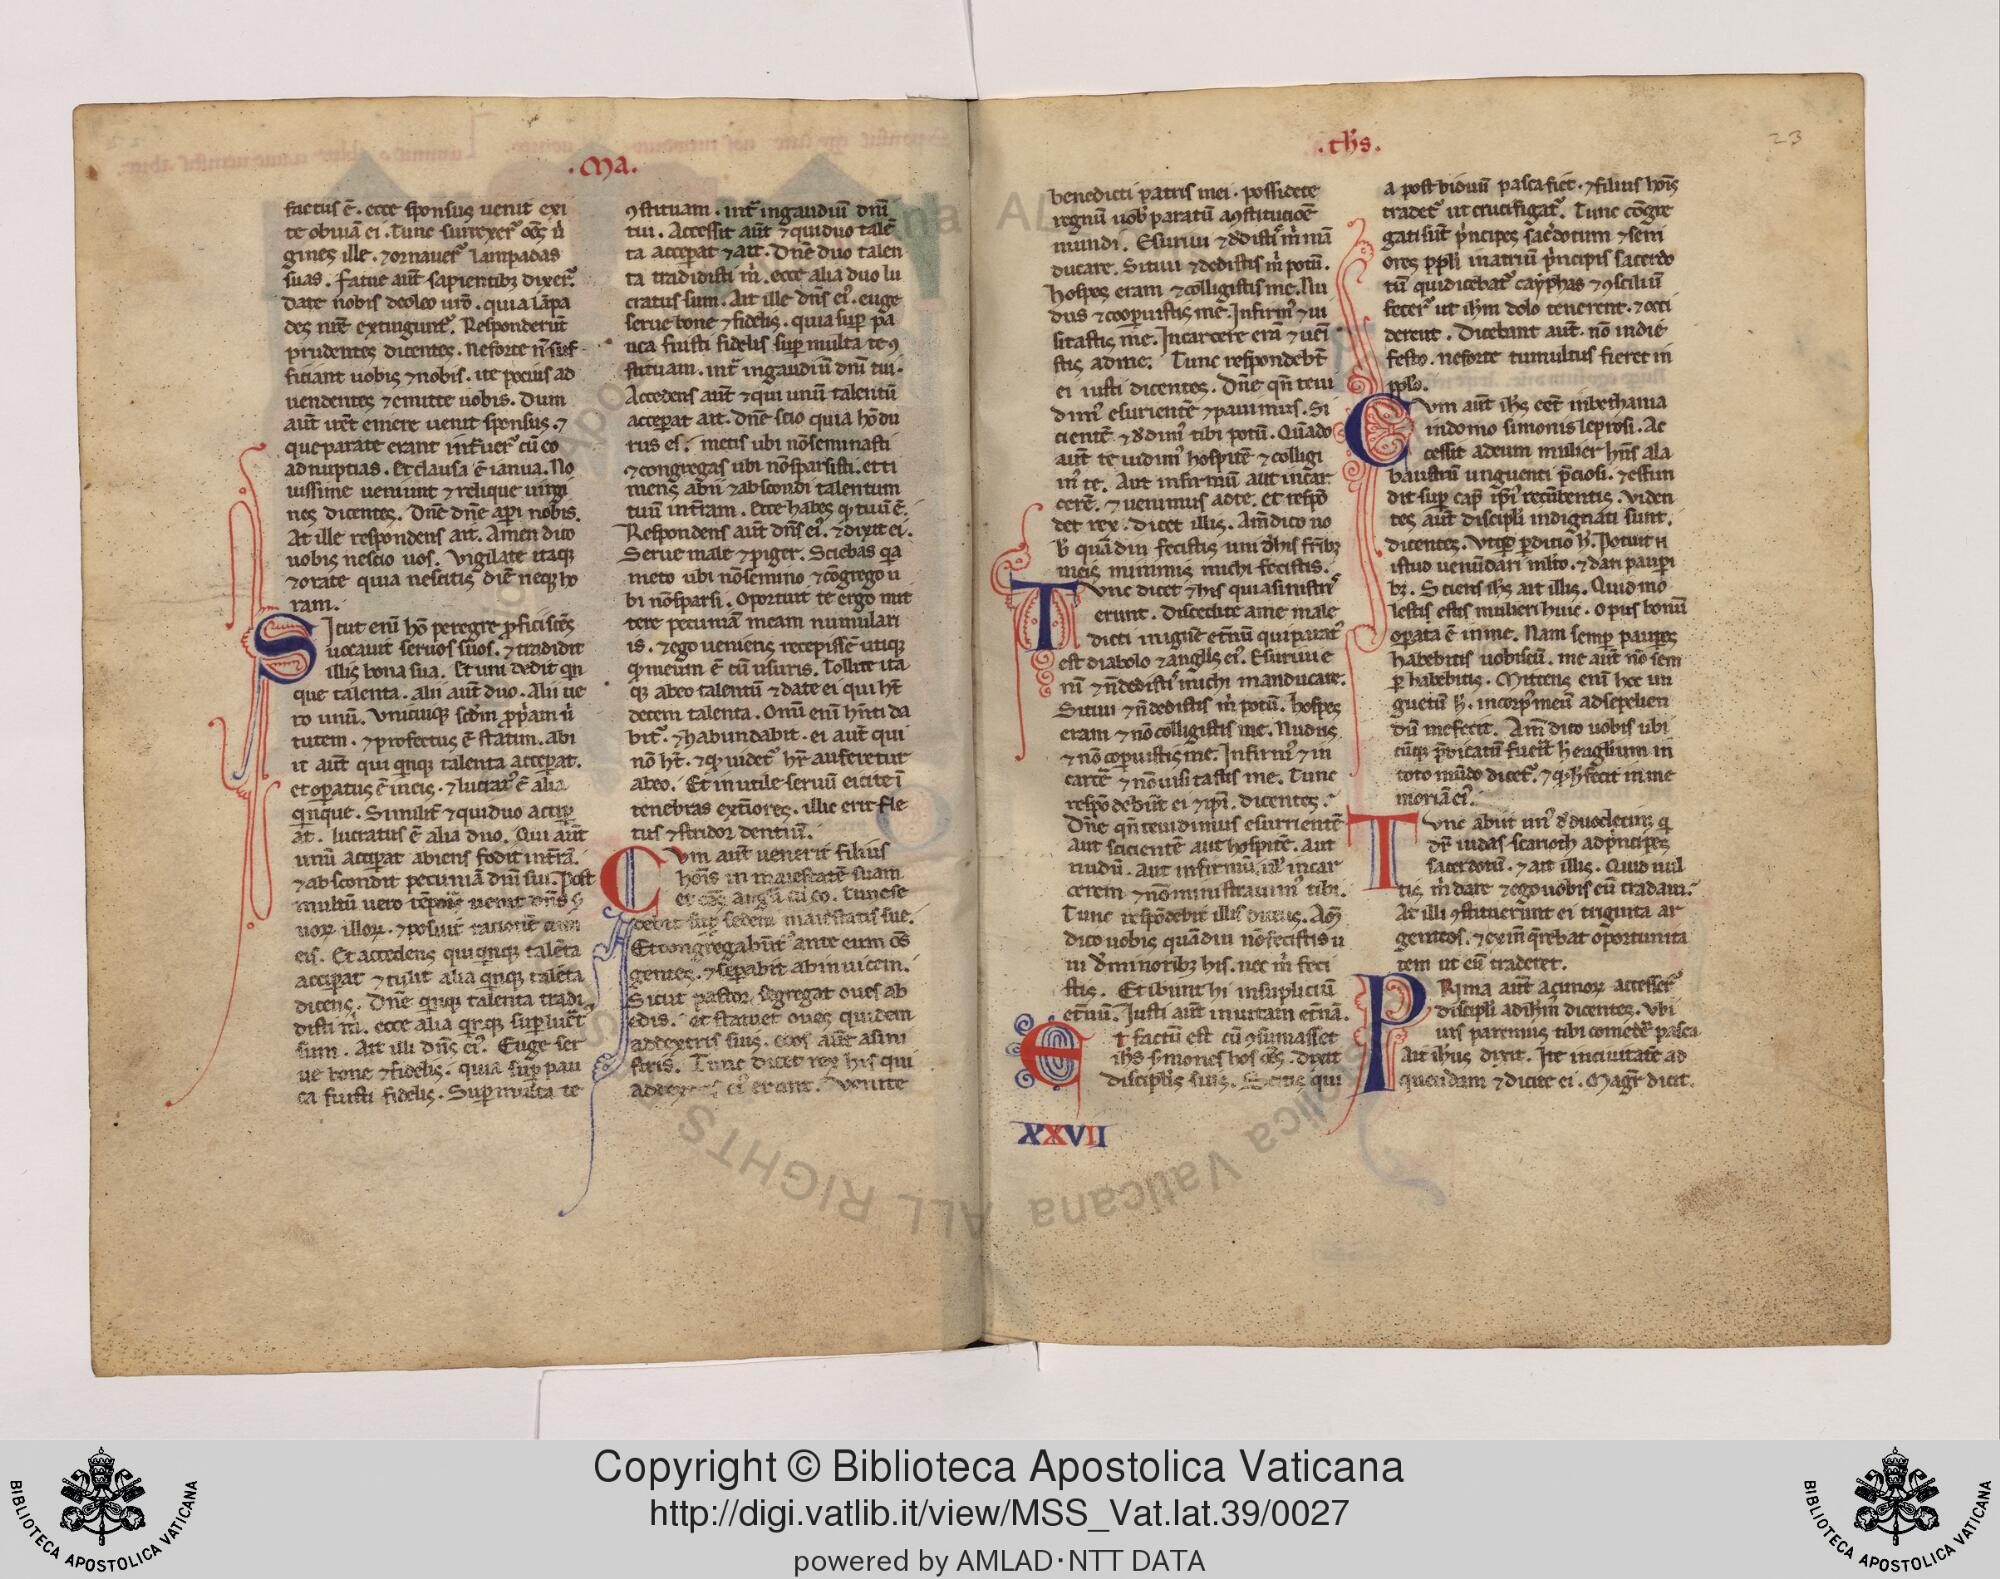 ·Ma·
factus ē. ecce sponsus uenit exi
te obuiā ei. Tunc surrexer̄ oēs ur̄
gines ille. ⁊ornauer̄ lampadas
suas. Fatue aūt sapientibꝫ dixer̄.
Date nobis deoleo uro. quia lāpa
des nr̄e extingunt̄. Responderūt
prudentes dicentes. Neforte n̄ suf
ficiant uobis ⁊nobis. ite pocius ad
uendentes ⁊emitte uobis. Dum
aūt irēt emere uenit sponsus. ⁊
que parate erant int̄uer̄ cū eo
ad nuptias. Et clausa ē ianua. No
uissime ueniunt ⁊relique uirgi
nes dicentes. Dn̄e dn̄e aperi nobis.
At ille respondens ait. Amen dico
uobis nescio uos. Vigilate itaqꝫ
⁊orate quia nescitis diē neqꝫ ho
ram.
Sicut enī hō peregre proficiscēs
uocauit seruos suos. ⁊tradidit
illis bona sua. Et uni dedit qn
que talenta. alii aūt duo. Alii ue
ro unū. Vnicuiqꝫ scdm propriam ūi
tutem. ⁊profectus ē statim. abi
it aūt qui qnqꝫ talenta acceperat.
et operatus ē in eis. ⁊lucrat' ē alia
qnque. Similit̄ ⁊qui duo accep
at. lucratus ē alia duo. Qui aūt
unū acceperat abiens fodit in t̄ra.
⁊abscondit pecuniā dn̄i sui. Post
multū uero tēporis uenit dn̄s s
uoꝝ illoꝝ. ⁊posuit rationē cum
eis. Et accedens qui qnqꝫ talēta
acceperat ⁊tulit alia qnqꝫ talēta
dicens. Dn̄e qnqꝫ talenta tradi
disti m̄. ecce alia qnqꝫ sup lucrat̄
sum. Ait illi dn̄s ei'. Euge ser
ue bone ⁊fidelis. quia sup pau
ca fuisti fidelis. Sup multa te
ꝯstituam. int̄ in gaudiū dn̄i
tui. Accessit aūt ⁊qui duo talē
ta acceperat ⁊ait. Dn̄e duo talen
ta tradidisti m̄. ecce alia duo lu
cratus sum. Ait ille dn̄s ei'. euge
serue bone ⁊fidelis. quia sup pa
uca fuisti fidelis sup multa te ꝯ
stituam. int̄ in gaudiū dn̄i tui.
Accedens aūt ⁊qui unū talentū
acceperat ait. Dn̄e scio quia hō du
rus es. metis ubi nō seminasti
⁊congregas ubi nō sparsisti. et ti
mens abii ⁊abscondi talentum
tuū in t̄ram. Ecce habes qꝫ tuū ē.
Respondens aūt dn̄s ei'. ⁊dixit ei.
Serue male ⁊piger. Sciebas qa
meto ubi nō semino ⁊cōgrego u
bi nō sparsi. Oportuit te ergo mit
tere pecuniā meam numulari
is. ⁊ego ueniens recepissē utiqꝫ
qꝫ meum ē cū usuris. Tollite ita
qꝫ abeo talentū ⁊date ei qui ht̄
decem talenta. Omī enī hn̄ti da
bit̄. ⁊habundabit. ei aūt qui
nō ht̄. ⁊qꝫ uidet̄ hr̄e auferetur
abeo. Et inutile seruū eicite ī
tenebras ext̄iores. illic erit fle
tus ⁊stridor dentiū.
Cum aūt uenerit filius
hōis in maiestate suam
et oēs angli cū eo. Tunc se
debit sup sedem maiestatis sue.
Et congregabūt̄ ante eum oēs
gentes. ⁊separabit abinuicem.
Sicut pastor segregat oues ab
edis. et statuet oues quidem
a dextris suis. edos aūt a sini
stris. Tunc dicet rex his qui
a dextris ei' erant. Venite
·ths·
23
benedicti patris mei. possidete
regnū uob paratū a ꝯstitucioē
mundi. Esuriui ⁊dedisti' m̄ mā
ducare. Sitiui ⁊dedistis m̄ potū.
hospes eram ⁊collegistis me. Nu
dus ⁊cooperuistis me. Infirm' ⁊ui
sitastis me. In carcere erā ⁊ueni
stis ad me. Tunc respondebt̄
ei iusti dicentes. Dn̄e qn̄ te ui
dim' esurientē ⁊pauimus. Si
cientē ⁊dedim' tibi potū. Quādo
aūt te uidim' hospitē ⁊collegi
m' te. Aut infirmū aut in car
cerē. ⁊uenimus ad te. Et respō
det rex. dicet illis. Amē dico uo
b̄ quādiu fecistis uni d̄ his frībꝫ
meis minimis michi fecistis.
Tunc dicet ⁊his qui a sinistr'
erunt. Discedite a me male
dicti in ignē et̄nū qui parat'
est diabolo ⁊anglis ei'. Esuriui e
nī ⁊n̄ dedisti' michi manducare.
Sitiui ⁊n̄ dedistis m̄ potū. hospes
eram ⁊nō collegistis me. Nudus
⁊nō coperuistis me. Infirm' ⁊in
carcē ⁊nō uisitastis me. Tunc
respōdebūt ei ⁊ipī. dicentes.
Dn̄e qn̄ te uidimus esurientē
aut scicientē aut hospitē. aut
nudū. Aut infirmū, ul' in car
cerem ⁊nō ministrauim' tibi.
Tunc respōdebit illis dicens. Am̄
dico uobis quādiu nō fecistis u
ni d̄ minoribꝫ his. nec m̄ feci
stis. Et ibunt hi in supliciū
et̄nū. Iusti aūt in uitam et̄nā.
Et factū est cū ꝯsumasset
ih̄s s̄mones hos oēs. dixit
discipl̄is suis. Scitis qui
XXVII
a post biduū pasca fiet. ⁊filius hōis
tradet̄ ut crucifigat̄. Tunc cōgre
gati sūt pncipes sacdotum ⁊seni
ores ppl̄i in atriū pncipis sacerdo
tū qui dicebat̄ cayphas ⁊ꝯsciliū
fecer̄ ut ih̄m dolo tenerent. ⁊occi
derent. Dicebant aūt. nō in die
festo. ne forte tumultus fieret in
pplo.
Cum aūt ih̄s eēt in bethania
in domo simonis leprosi. Ac
cessit ad eum mulier hn̄s ala
baustrū unguenti pciosi. ⁊effun
dit sup cap ipi' recūbentis. Viden
tes aūt discipli indignati sunt.
dicentes. Vt qd pditio h̄. Potuit n̄
istud uenūdari mlto. ⁊dari paupi
bꝫ. Sciens ih̄s ait illis. Quid mo
lesti estis mulieri huic. opus bonū
operata ē in me. Nam semp paupes
habebitis uobiscū. me aūt nō sem
p habebitis. Mittens enī hec un
guētū h̄. in corp' meū ad sepelien
dū me fecit. Am̄ dico uobis ubi
cūqꝫ pdicatū fuerit h̄ euglium in
toto mūdo dicet̄. ⁊qꝫ h̄ fecit in me
moriā ei'.
Tunc abiit un' d̄ duodecim q
dr̄ iudas scarioth ad pncipes
sacerdotū. ⁊ait illis. Quid uul
tis m̄ dare ⁊ego uobis eū tradam.
At illi ꝯstituerunt ei triginta ar
genteos. ⁊exin̄ qrebat oportunita
tem ut eū traderet.
Prima aūt acimoꝝ accesser̄
discipli ad ih̄m dicentes. Vbi
uis paremus tibi comedē pasca
Ait ih̄us dixit. Ite in ciuitatē ad
quendam ⁊dicite ei. Magr̄ dicit.
Copyright © Biblioteca Apostolica Vaticana
http://digi.vatlib.it/view/MSS_Vat.lat.39/0027
powered by AMLAD·NTT DATA
BIBLIOTECA APOSTOLICA VATICANA
BIBLIOTECA APOSTOLICA VATICANA